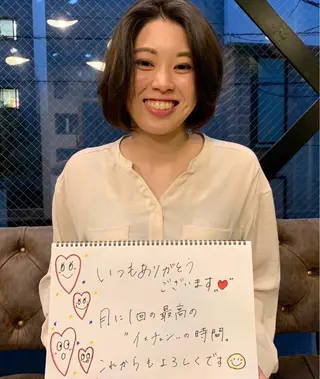 いつもありがとう
ございます。
月に1回の最高の
"イメチェン"の時間。
これからもよろしくです